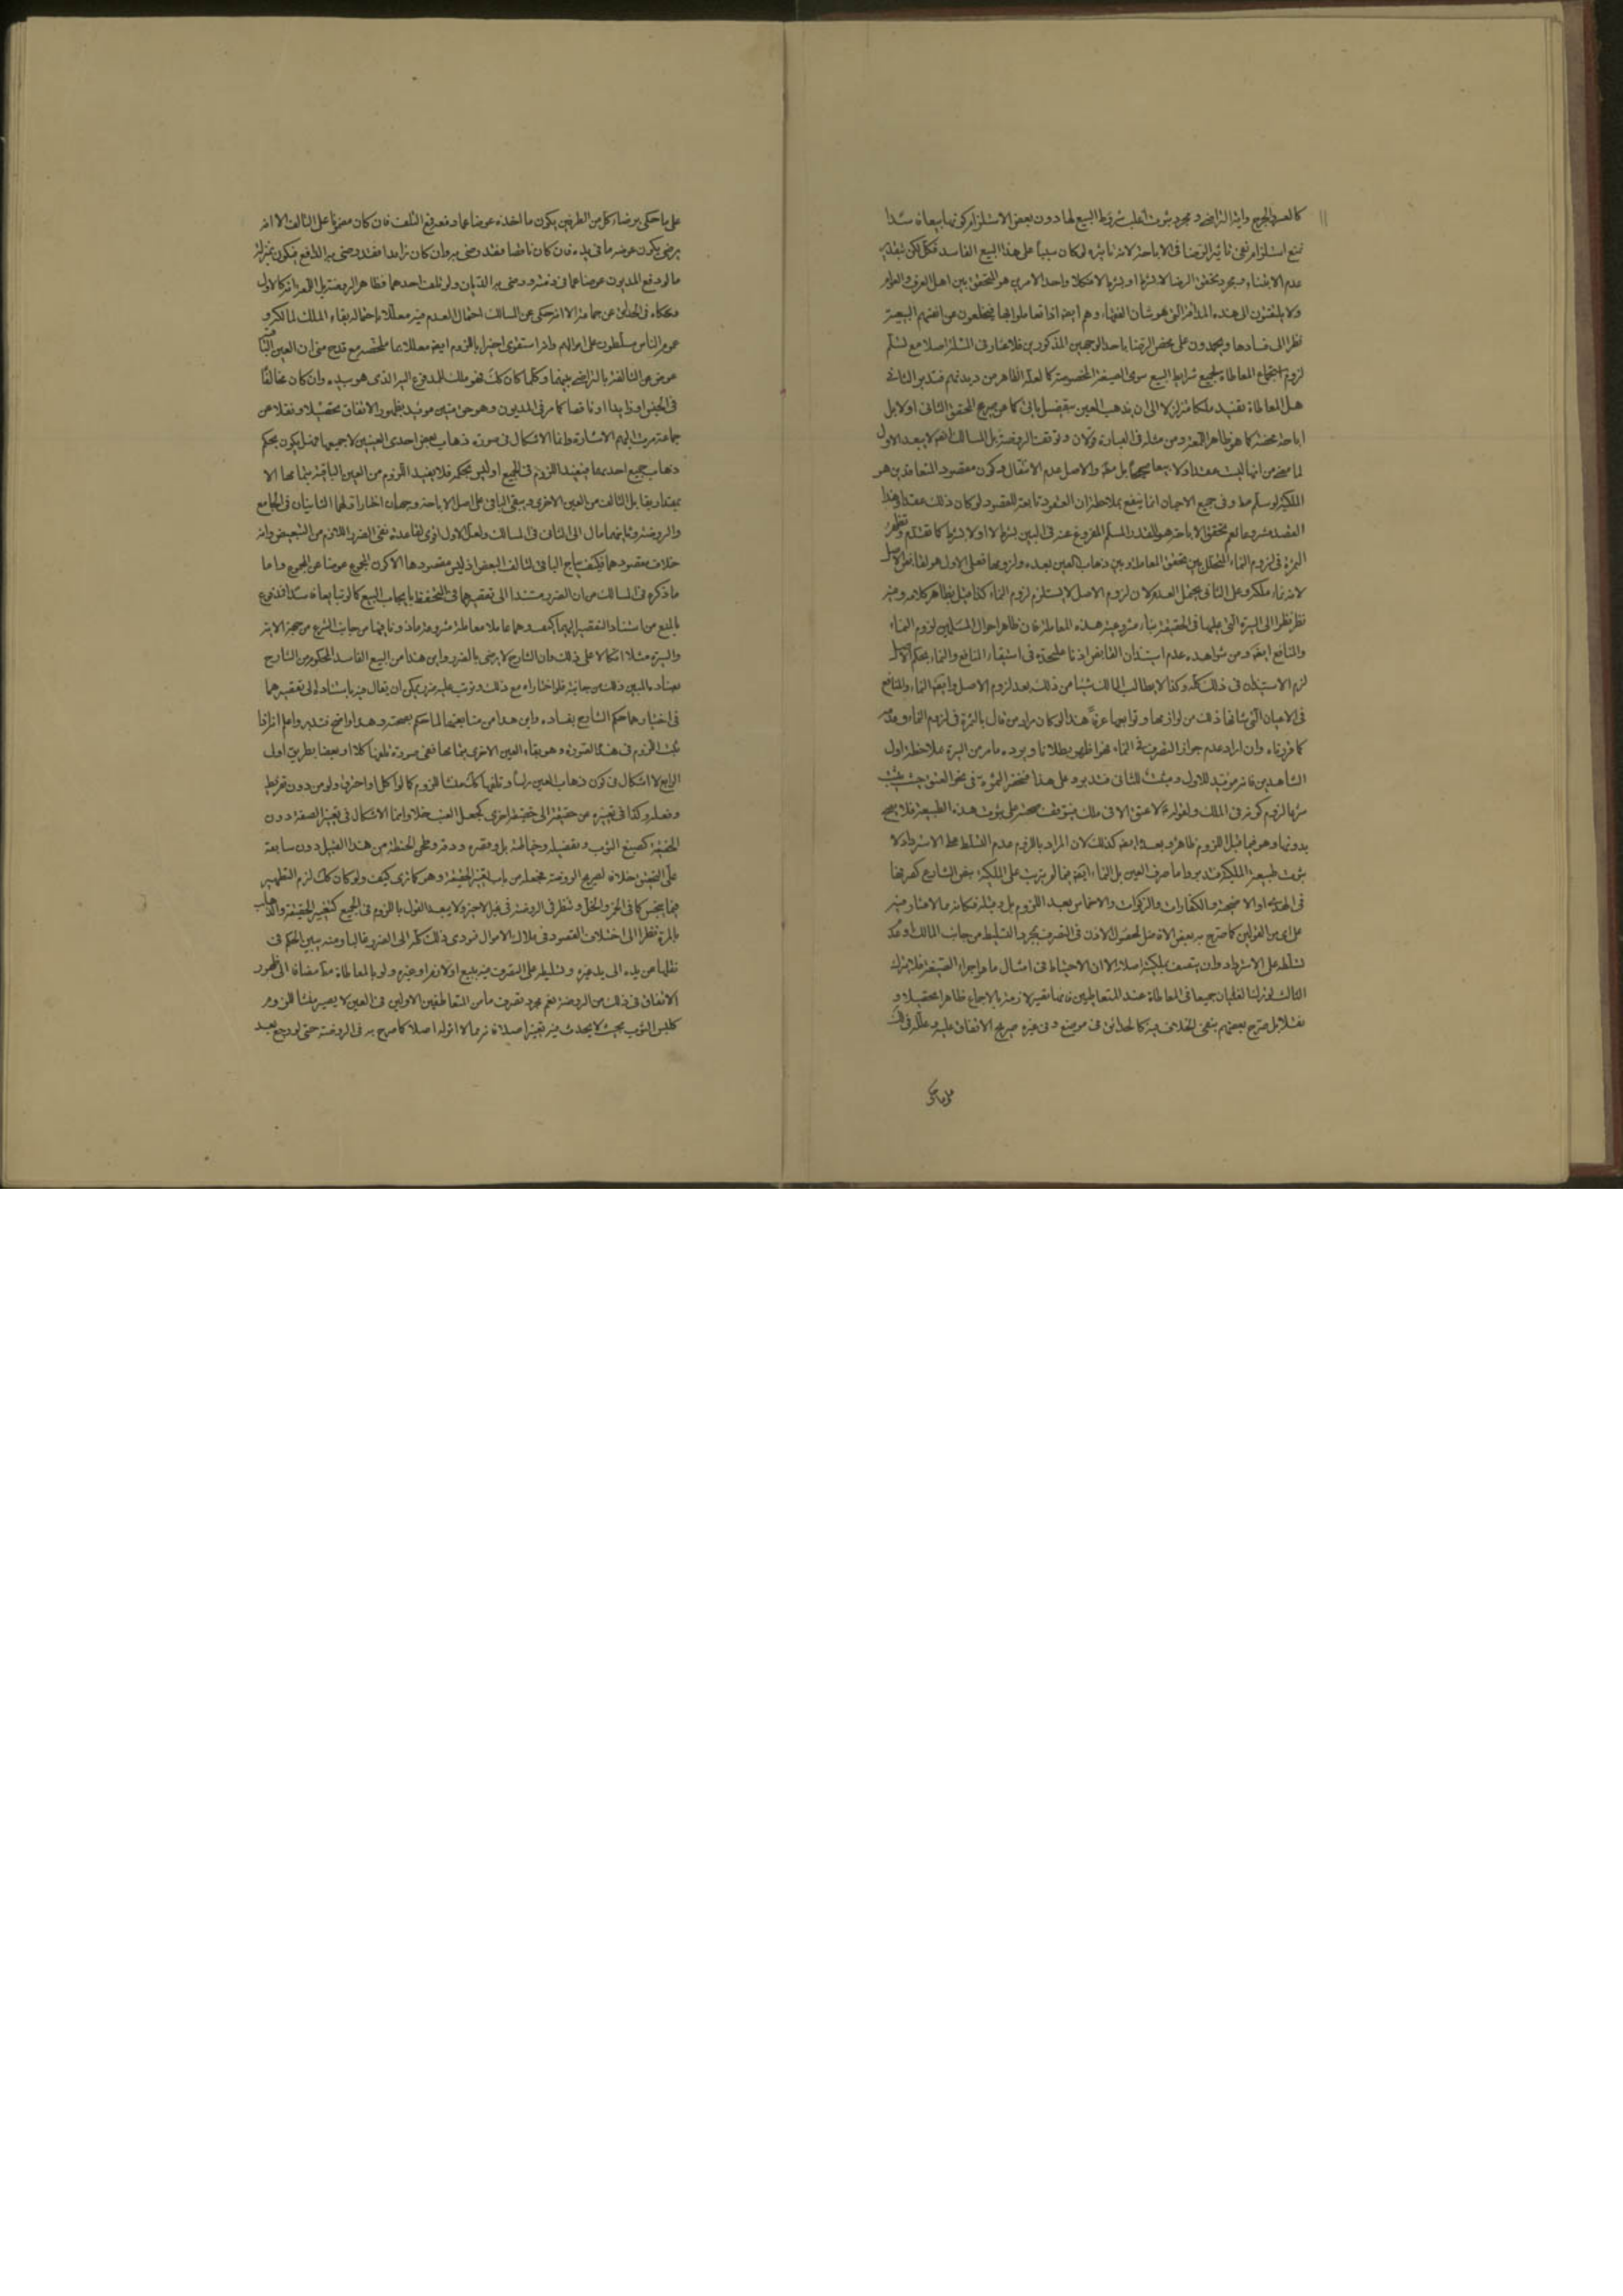 كالعسر والحرج وآية التراضى ومجرد ثبوت اغلب شروط البيع لها دون بعض الاستلزام كونها بيعا فاسدا
نمنع استلزام نفى تاثير الرضا فى الاباحة لانه تاثيره لو كان مبنيا على هذا البيع الفاسد فكك لكن بتقدير
عدم الابتناء ومجرد تحقق الرضا لا بشرط او بشرط لا فكلا واحد الامرين هو المتحقق بين اهل العرف والعوام
ولا يلتفتون الى هذه المداقة التى هو شان الفقهاء وهم ايضا اذا تعاملوا بها يخلعون عن انفسهم
نظرا الى فسادها ويجدون على محض الرضا باحد الوجهين المذكورين فلا غبار فى المسئلة اصلا مع تسلم
لزوم اجتماع المعاطاة لجميع شرايط البيع سوى الصيغة المخصوصة كما لعله الظاهر من ديدنهم فتدبر الثانى
هل المعاطاة تفيد ملكا متزلزلا الى ان يذهب العين كما عن صريح المحقق الثانى او لا بل
اباحة محضة كما هو ظاهر ومن مثله فى العبارة قولان وتوقف الروضة بل المسالك لا يبعد الاول
لما صح من انها ليست عقدا ولا بيعا صحيحا بل والاصل عدم الانتقال وكون مقصود المتعاقدين هو
الملكية لو سلم مط وفى جميع الاحيان انما ينفع بملاحظة ان العقود تابعة للقصود لو كان ذلك عقدا وهذا
القصد مشروعا نعم تحقق الاباحة هو القدر المسلم المفروغ عنه فى البين بشرط لا او لا بشرط كما تقدم وتظهر
الثمرة فى لزوم النماء المتخلل بين تحقق المعاملة وبين ذهاب العين بعده ولزومها فعلى الاول هو لقابض الاصل
لانه نماء ملكه وعلى الثانى يحتمل العدم لان لزوم الاصل لا يستلزم لزوم النماء كذا قيل بظاهر كلامه وفيه
نظر نظرا الى السيرة التى عليها فى الحقيقة بناء مشروعية هذه المعاملة فان ظاهر احوال المسلمين لزوم النماء
والمنافع ايضا ومن شواهده عدم استيذان القابض اذنا عليحدة فى استيفاء المنافع والنماء بحكم الاصل
لزم الاستيذان فى ذلك كله وكذا لا يطالب المالك شيئا من ذلك بعد لزوم الاصل وايضا النماء والمنافع
فى الاعيان التى شانها ذلك من لوازمها وتوابعها عرفا هذا لو كان مراد من قال بالثمرة فى لزوم النماء وعدمه
كما قررناه وان اراد عدم جواز التصرف فى النماء فهو اظهر بطلانا ويرده ما مر من السيرة بملاحظة اول
الشاهدين فانه مؤيد للاول ومثبت للثانى فتدبر وعلى هذا فتختص الثمرة فى نحو العتق حيث يثبت
شرط لزوم كونه فى الملك ولقوله لا عتق الا فى ملك فيتوقف صحته على ثبوت هذه الطبيعة فلا يصح
بدونها وهو فيما قبل اللزوم ظاهر وبعده ايضا كذلك لان المراد باللزوم عدم التسلط مط الاسترداد لا
ثبوت طبيعة الملكية فتدبر واما صرف العين بل النماء ايضا فيما لم يترتب على الملكية بنص الشارع كصرفها
فى الهدى او الاضحية والكفارات والزكوات والاخماس بعد اللزوم بل وقبله فكانه مما لا غبار فيه
على اى من القولين كما صرح به بعض الافاضل لحصول الاذن فى التصرف بمجرد التسليط من جانب المالك وعدم
تسلطه على الاسترداد وان يتصف بملكيته اصلا الا ان الاحتياط فى امثال ما هو اجراء الصيغة فلا يترك
الثالث لو تلفت العينان جميعا فى المعاطاة عند المتعاطيين فانها تصير لازمة بالاجماع ظاهرا محصلا و
نقلا بل صرح بعضهم بنفى الخلاف فيه كالحدائق فى موضع وفى غيره صريح الاتفاق عليه وعلله فى لك
على ما حكى
على ما حكى برضاء كل من الطرفين بكون ما اخذه عوضا عما دفعه فمع التلف فان كان مضمونا على التالف الا انه
يرضى بكون عوضه ما فى يده فان كان ناقصا فقد رضى به وان كان زايدا فقد رضى به الدافع فيكون بمنزلة
ما لو دفع المديون عوضا عما فى ذمته ورضى به الديان ولو تلف احدهما فظاهر الروضة بل اللمعة انه كالاول
وحكاه فى الحدائق عن جماعة الا انه حكى عن المسالك احتمال العدم فيه معللا باصالة بقاء الملك لمالكه و
عموم الناس مسلطون على اموالهم وانه استقوى اخيرا باللزوم ايضا معللا بما ملخصه مع قدح منى ان العين الباقية
عوض عن التالفة بالتراضى بينهما وكلما كان كك فهو ملك للمدفوع اليه الذى هو بيده وان كان مخالفا
فى الجنس او زايدا او ناقصا كما مر فى المديون وهو حق متين مؤيد بظهور الاتفاق تحصيلا ونقلا عن
جماعة مرت اليهم الاشارة وانما الاشكال فى صورة ذهاب بعض احدى العينين لا جميعها فهل يكون بحكم
ذهاب جميع احديهما فيفيد اللزوم فى الجميع او ليس بحكمه فلا يفيد اللزوم من العين الباقية بتمامها الا
بمقدار يقابل التالف من العين الاخرى ويبقى الباقى على اصل الاباحة وجهان اختار اولهما الثانيان فى الجامع
والروضة وثانيهما مال الى الثانى فى المسالك ولعل الاول اقوى لقاعدة نفى الضرر اللازم من التبعيض وانه
خلاف مقصودهما فكيف يباح الباقى لتالف البعض اذ ليس مقصودهما الا كون المجموع عوضا عن المجموع واما
ما ذكره فى المسالك من ان الضرر مستندا الى تقصيرهما فى التحفظ بايجاب البيع كما لو تبايعا فاسدا فمدفوع
بالمنع من استناد التقصير اليهما كيف وهما عاملا معاملة مشروعة ماذونا فيها من جانب الشرع من جهة الاية
والسيرة مثلا اتكالا على ذلك وان الشارع لا يرضى بالضرر واين هذا من البيع الفاسد المحكوم من الشارع
بفساده المبين ذلك من جانبه فلو اختاراه مع ذلك وترتب عليه ضرر يمكن ان يقال فيه باستناده الى تقصيرهما
فى اختيارهما حكم الشارع بفساده واين هذا من متابعتهما لما حكم بصحته وهذا واضح فتدبر واعلم انه اذا
ثبت اللزوم فى هذه الصورة وهو بقاء العين الاخرى بتمامها ففى صورة تلفها كلا او بعضا بطريق اولى
الرابع لا اشكال فى كون ذهاب العين راسا وتلفها كك منشا للزوم كما لو اكل او احترق ولو من دون تفريط
وفعله وكذا فى تغييره عن حقيقته الى حقيقة اخرى كجعل العنب خلا وانما الاشكال فى تغيير الصفة دون
الحقيقة كصبغ الثوب وتفصيله وخياطته بل وقصره ودقه وطحن الحنطة من هذا القبيل دون سابعة
على التحقيق خلافا لصريح الروضة فجعله من باب تغيير الحقيقة وهو كما ترى كيف ولو كان كك لزم التطهير
فيما ينجس كما فى الخمر والخل ونظر فى الروضة فى قبل الاخيرة ولا يبعد القول باللزوم فى الجميع كتغيير الحقيقة والذهاب
بالمرة نظرا الى اختلاف القصود فى ملاك الاموال فيودى ذلك كله الى الضرر غالبا ومنه يبين الحكم فى
نقلها عن يده الى يد غيره وتسليطه على التصرف فيه ببيع او لازم او غيره ولو بالمعاطاة مضافا الى ظهور
الاتفاق فى ذلك من الروضة نعم مجرد تصرف ما من المتعاطيين الاولين فى العين لا يصير منشا للزوم
كلبس الثوب بحيث لا يحدث فيه تغيير اصلا فانه مما لا اثر له اصلا كما صرح به فى الروضة حتى لو رجع بعد